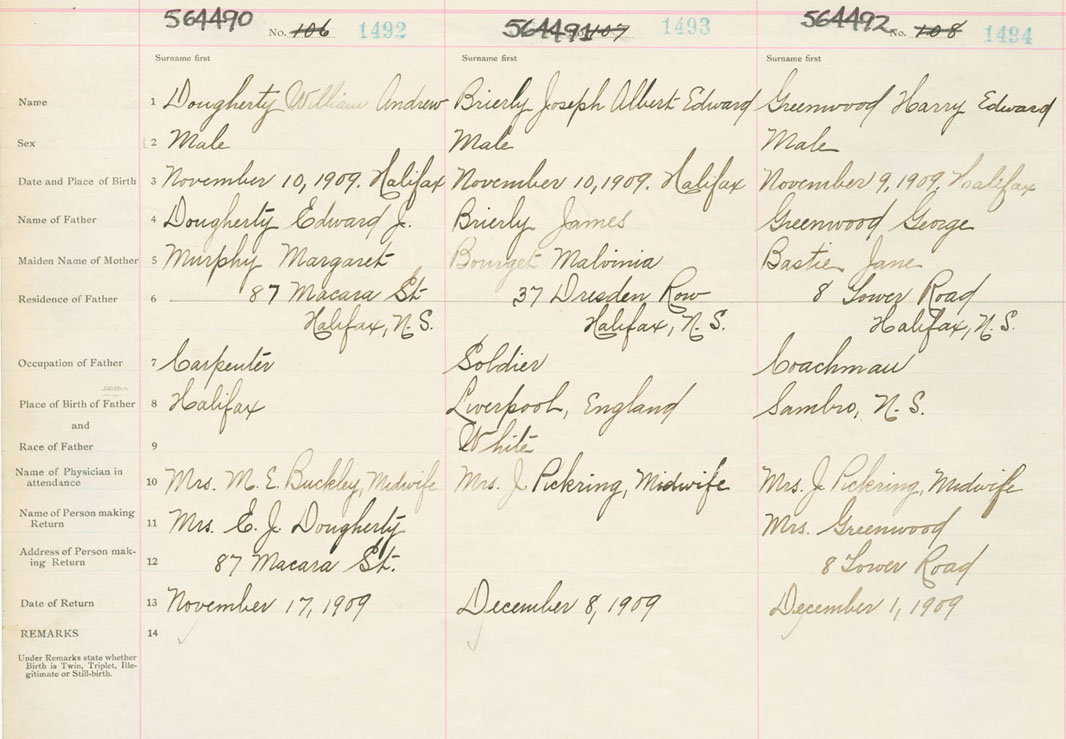 564490 No. 106 1492 564491 107 1493 564492 No. 108 1494
Surname first Surname first Surname first
Name 1 Dougherty William Andrew Brierly Joseph Albert Edward Greenwood Harry Edward
Sex 2 Male Male Male
Date and Place of Birth 3 November 10, 1909. Halifax November 10, 1909. Halifax November 9, 1909. Halifax
Name of Father 4 Dougherty Edward J. Brierly James Greenwood George
Maiden Name of Mother 5 Murphy Margaret Bourget Malvinia Bastie Jane
Residence of Father 6 87 Macara St. 37 Dresden Row 8 Lower Road
Halifax, N.S. Halifax, N.S. Halifax, N.S.
Occupation of Father 7 Carpenter Soldier Coachman
Place of Birth of Father 8 Halifax Liverpool, England Sambro, N.S.
and
Race of Father 9 White
Name of Physician in
attendance 10 Mrs. M. E. Buckley, Midwife Mrs. J Pickring, Midwife Mrs. J Pickring, Midwife
Name of Person making
Return 11 Mrs. E. J. Dougherty Mrs. Greenwood
Address of Person mak-
ing Return 12 87 Macara St. 8 Lower Road
Date of Return 13 November 17, 1909 December 8, 1909 December 1, 1909
REMARKS 14
Under Remarks state whether
Birth is Twin, Triplet, Ille-
gitimate or Still-birth.